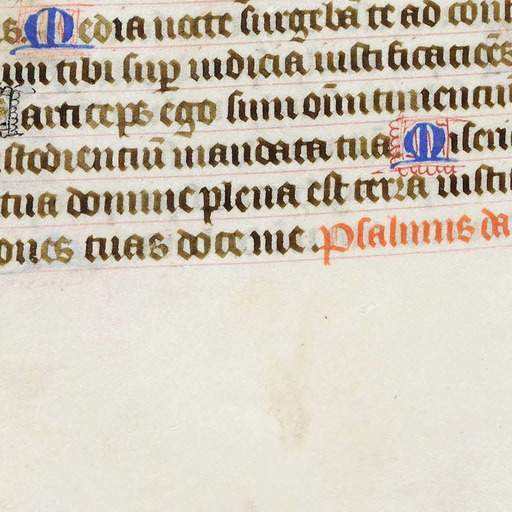 s. Media nocte surgebā te ad conf
un tibi sup iudiciā iustificaticēs
Particeps ego sum oīm timenciū
stodienciū mandata tua Miseri
tua domine plena est terra iusti
ones tuas doce me. Psalmus da